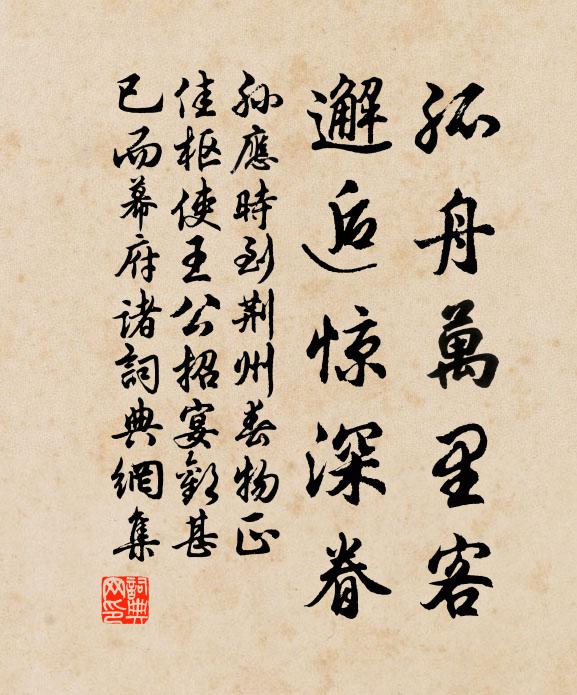 孤舟萬里客
邂逅惊深眷
孫應時到荆州春物正
佳枢使王公招宴歡甚
已而幕府诸詞典網集
詞典網印